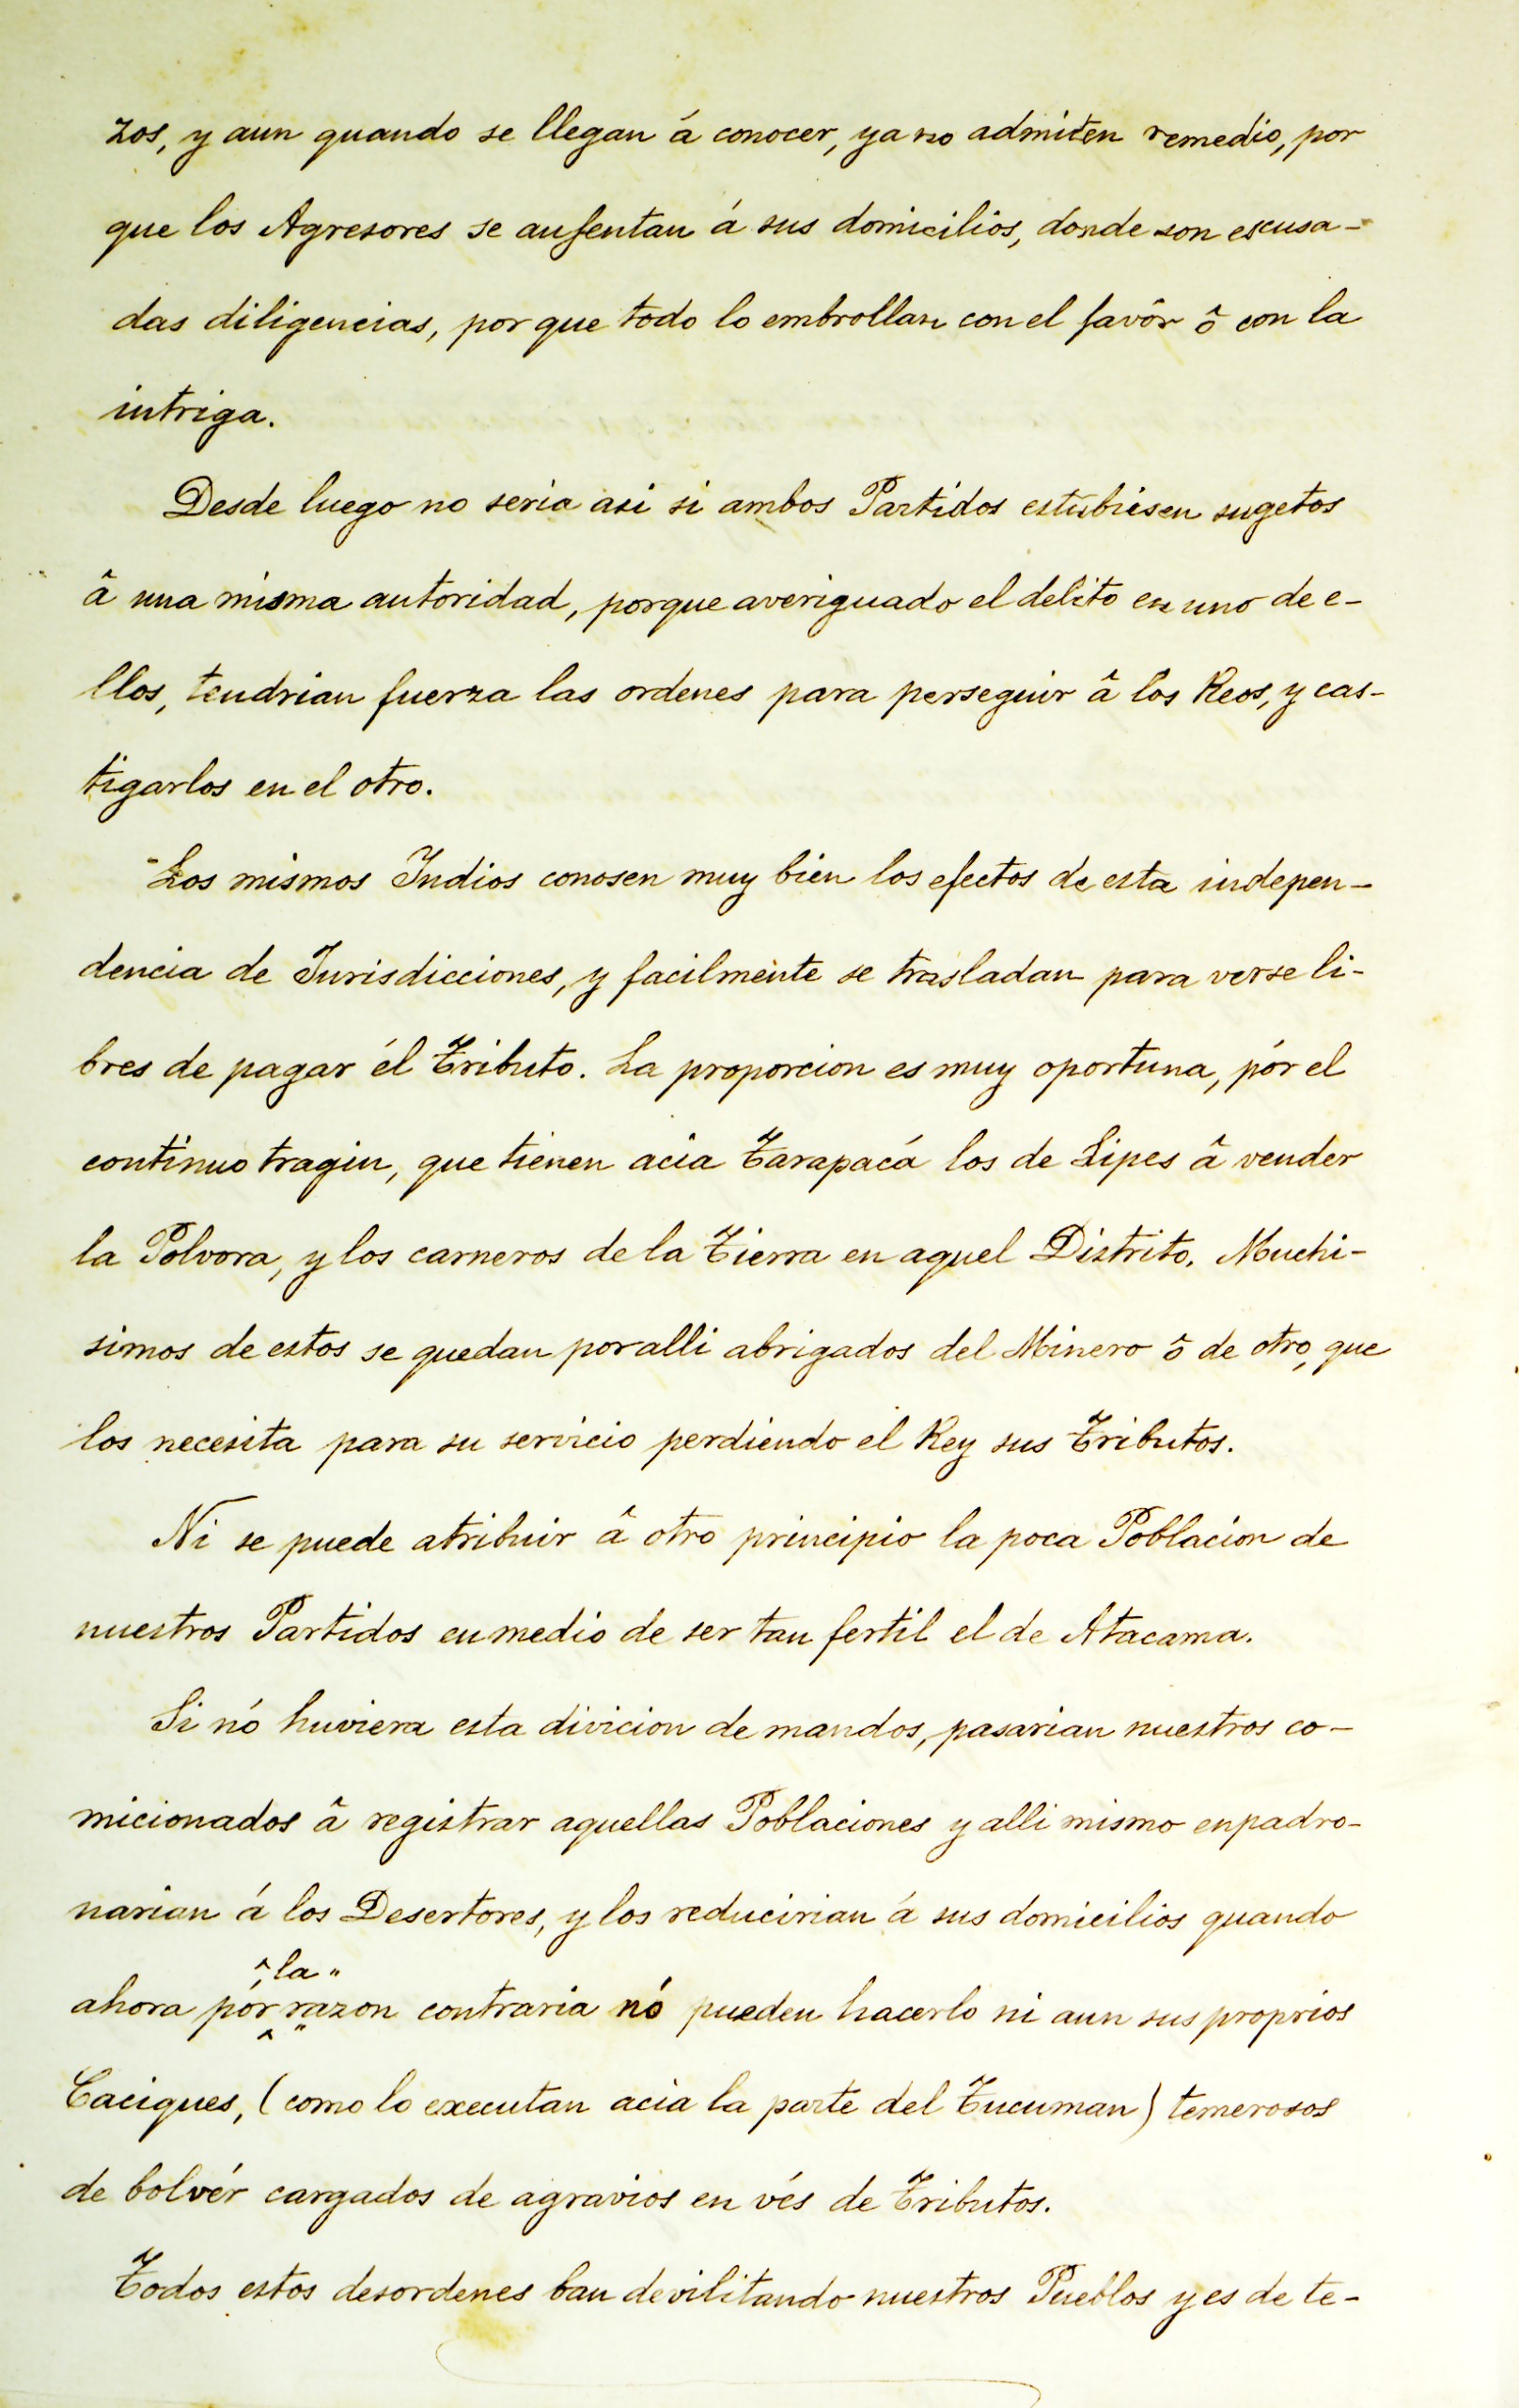 zos, y aun quando se llegan á conocer, ya no admiten remedio, por
que los Agresores se ausentan á sus domicilios, donde son escusa-
das diligencias, por que todo lo embrollan con el favôr ô con la
intriga.
Desde luego no seria asi si ambos Partidos estubiesen sugetos
â una misma autoridad, porque averiguado el delito en uno de e-
llos, tendrian fuerza las ordenes para perseguir â los Reos, y cas-
tigarlos en el otro.
Los mismos Indios conosen muy bien los efectos de esta indepen-
dencia de Jurisdicciones, y facilmente se trasladan para verse li-
bres de pagar él Tributo. La proporcion es muy oportuna, pór el
continuo tragin, que tienen acia Tarapacá los de Lipes â vender
la Polvora, y los carneros de la Tierra en aquel Distrito. Muchi-
simos de estos se quedan por alli abrigados del Minero ô de otro, que
los necesita para su servicio perdiendo el Rey sus Tributos.
Ni se puede atribuir â otro principio la poca Poblacion de
nuestros Partidos en medio de ser tan fertil el de Atacama.
Si nó huviera esta divicion de mandos, pasarian nuestros co-
micionados â registrar aquellas Poblaciones y alli mismo enpadro-
narian á los Desertores, y los reducirian á sus domicilios quando
^ la "
ahora pór razon contraria nó pueden hacerlo ni aun sus proprios
Caciques, (como lo executan acia la parte del Tucuman) temerosos
de bolvér cargados de agravios en vés de Tributos.
Todos estos desordenes ban devilitando nuestros Pueblos y es de te-